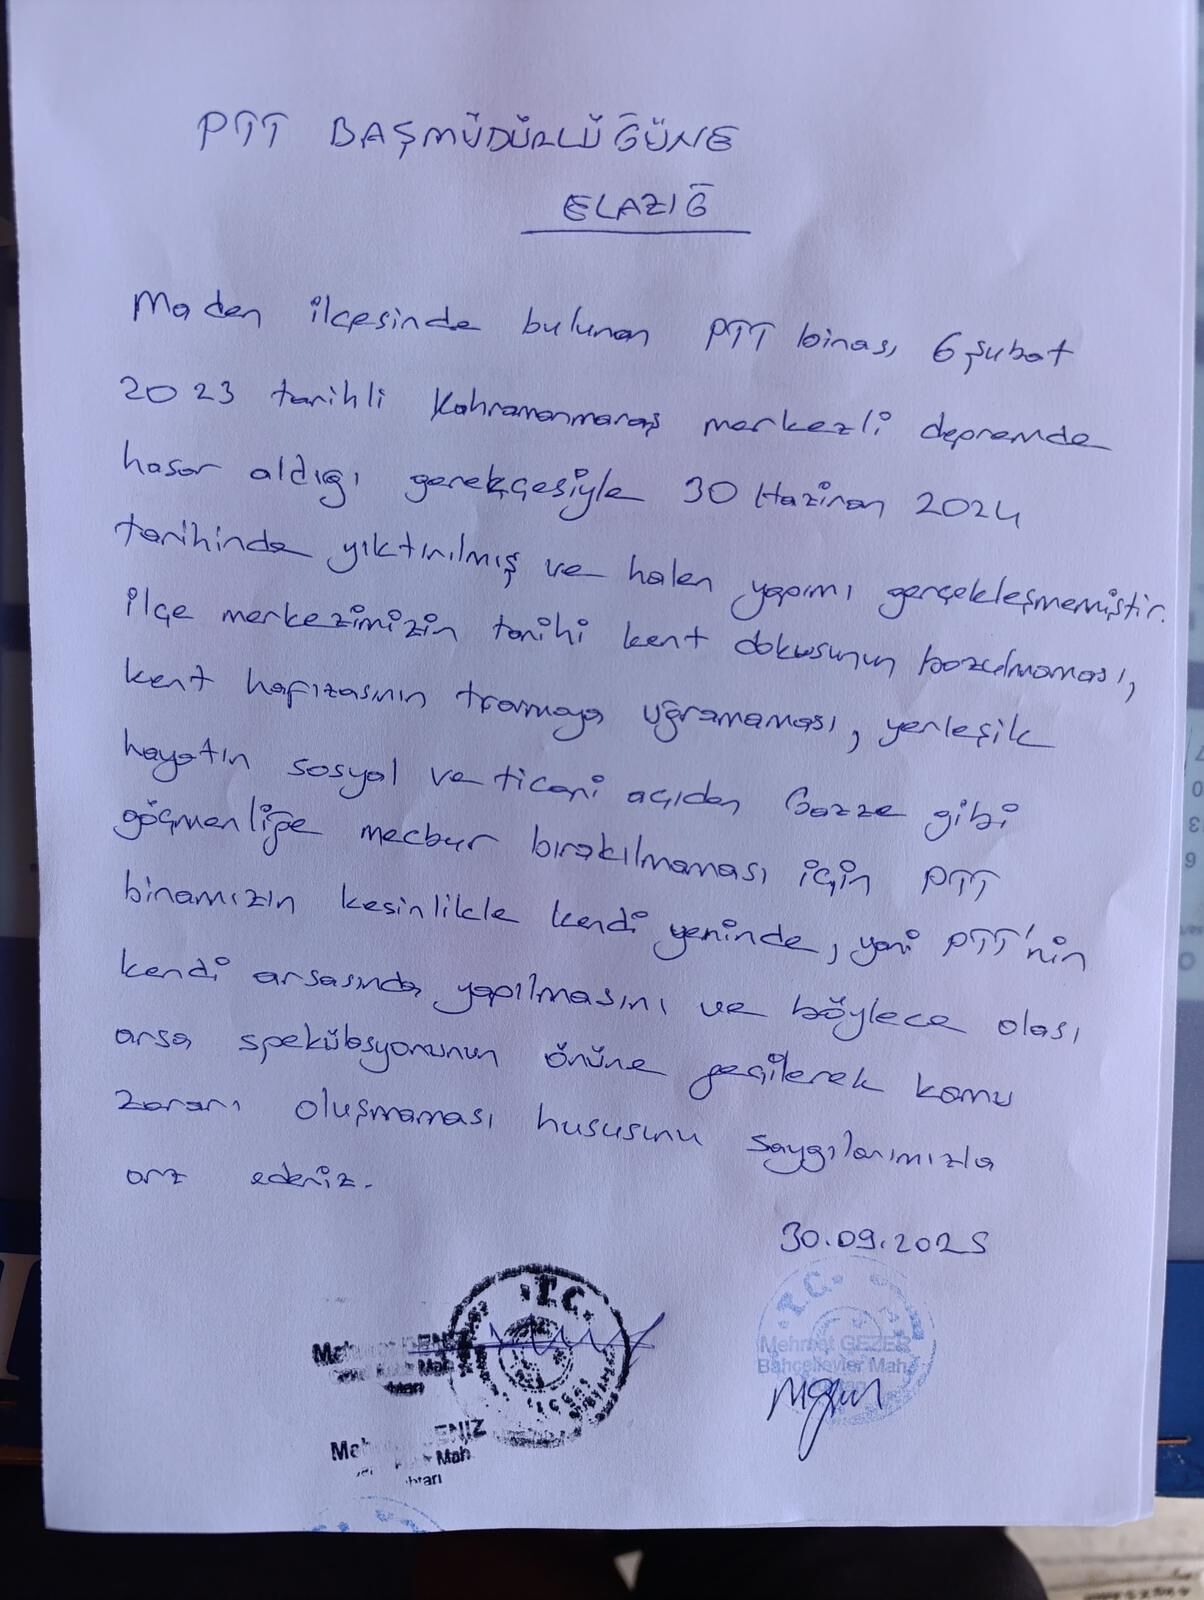 PTT BAŞMÜDÜRLÜĞÜNE
ELAZIĞ
Maden ilçesinde bulunan PTT binası 6 Şubat
2023 tarihli Kahramanmaraş merkezli depremde
hasar aldığı gerekçesiyle 30 Haziran 2024
tarihinde yıktırılmış ve halen yapımı gerçekleşmemiştir.
ilçe merkezimizin tarihi kent dokusunun bozulmaması,
kent hafızasının travmaya uğramaması, yerleşik
hayatın sosyal ve ticari açıdan Gazze gibi
göçmenliğe mecbur bırakılmaması için PTT
binamızın kesinlikle kendi yerinde, yani PTT'nin
kendi arsasında yapılmasını ve böylece olası
arsa spekülasyonunun önüne geçilerek kamu
zararı oluşmaması hususunu saygılarımızla
arz ederiz.
30.09.2025
T.C.
DENİZ
Mah
T.C.
Mehmet GEZER
Bahçelievler Mah.
ENİZ
Mah